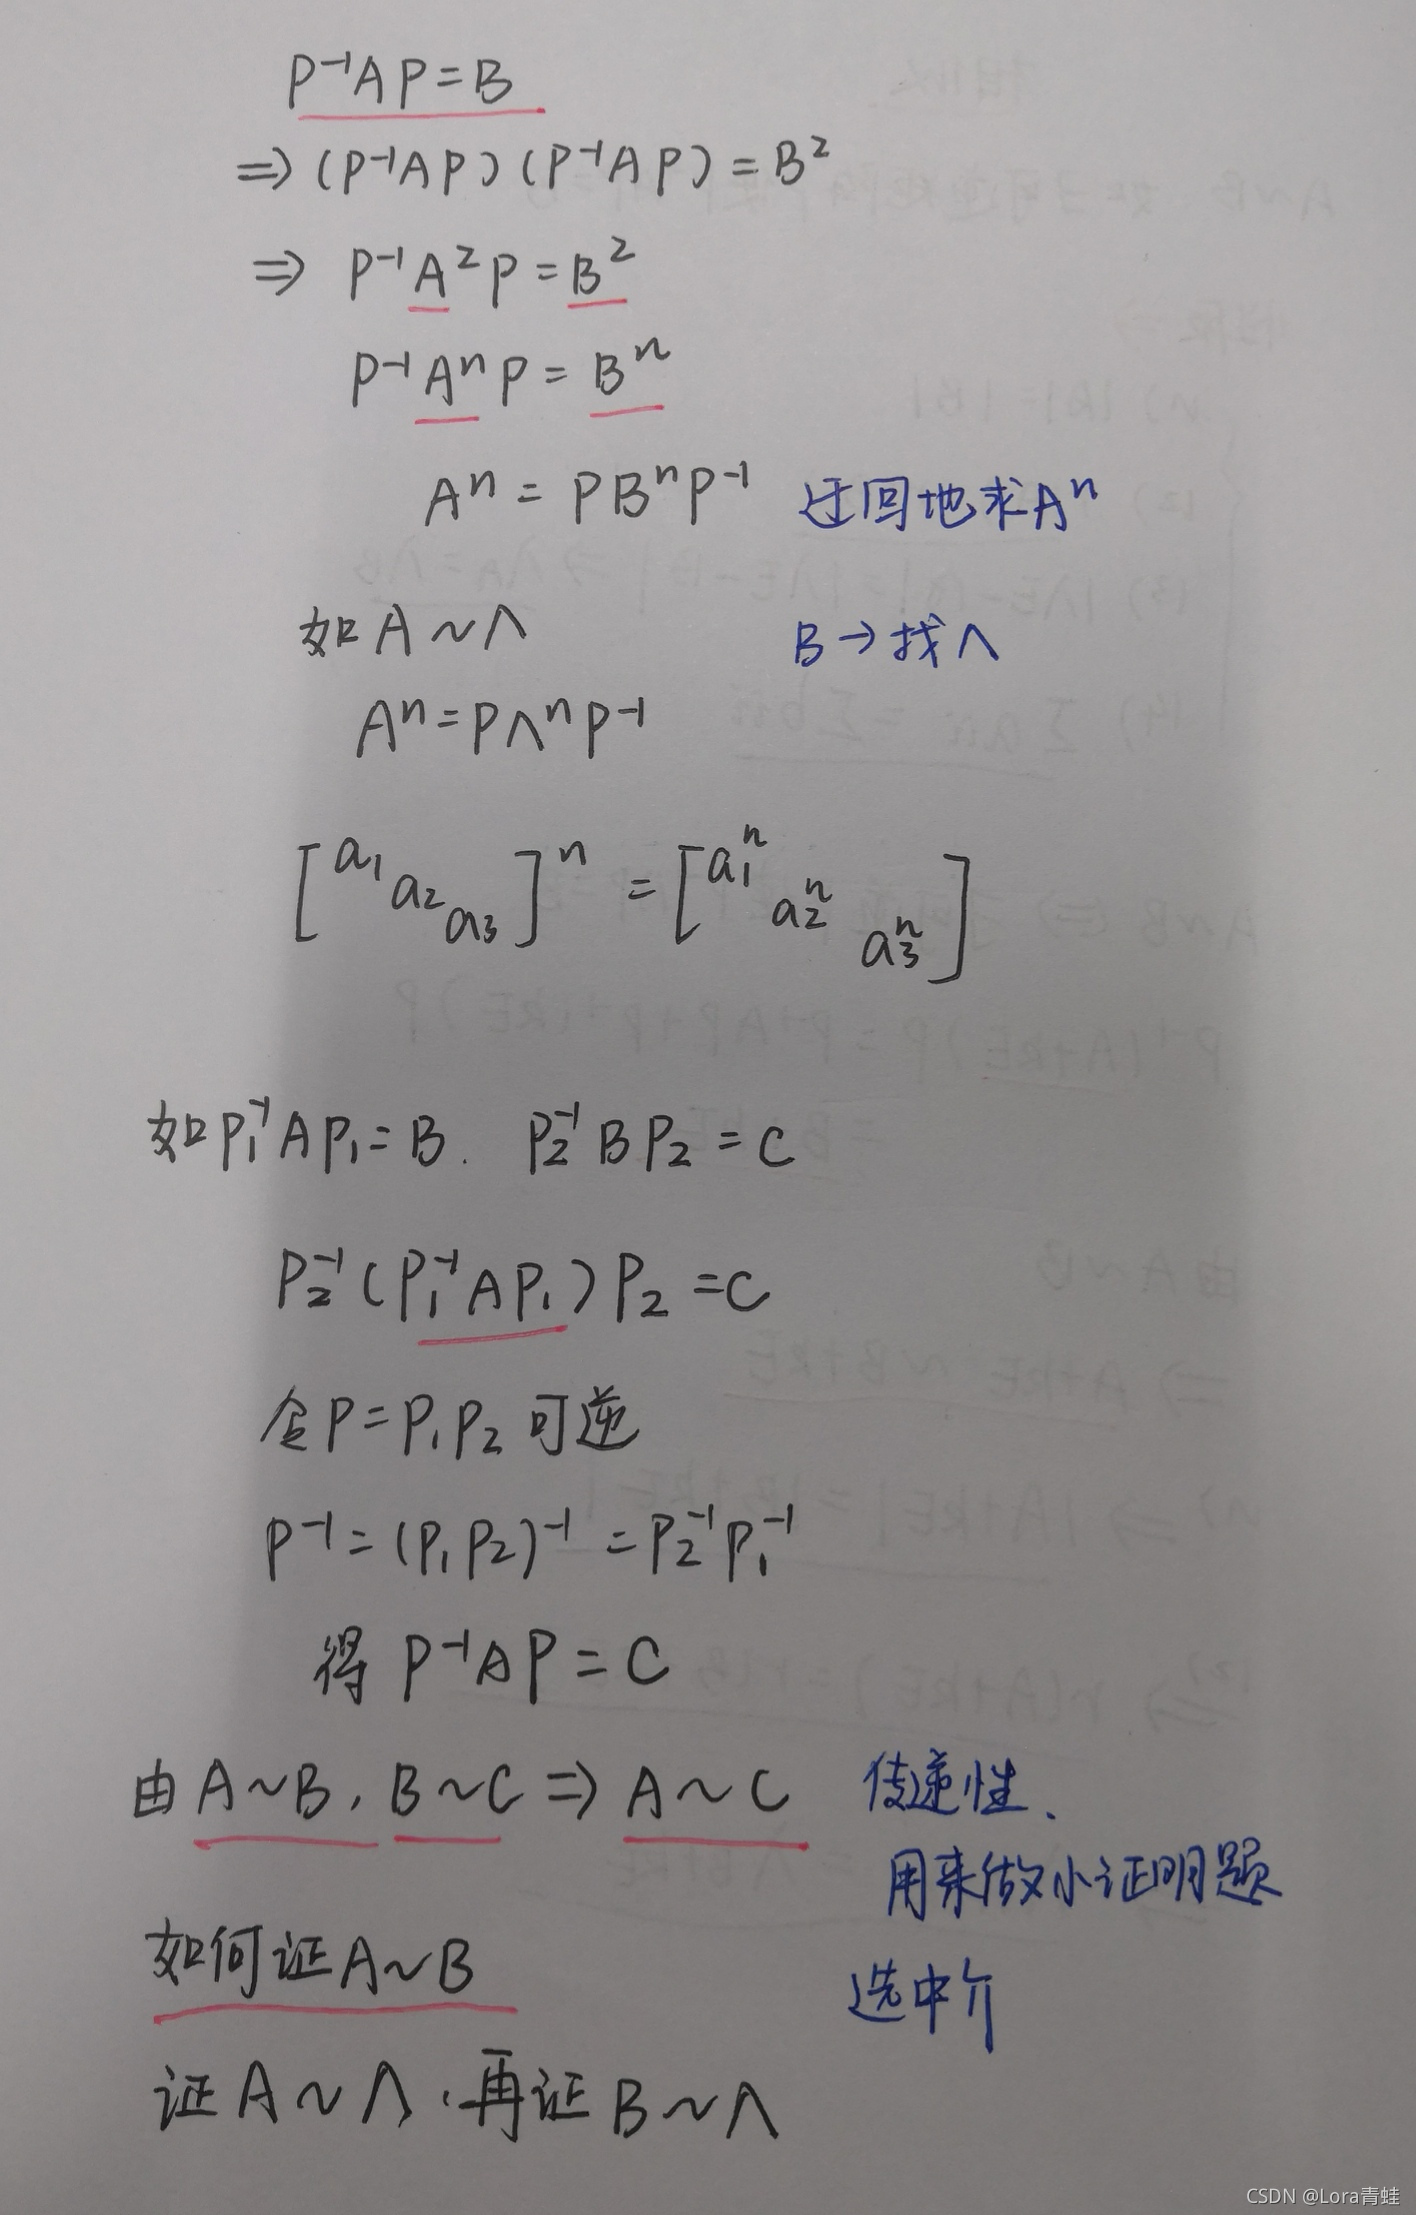 P⁻¹AP=B
⇒(P⁻¹AP)(P⁻¹AP)=B²
⇒ P⁻¹A²P=B²
P⁻¹AⁿP=Bⁿ
Aⁿ=PBⁿP⁻¹ 迂回地求Aⁿ
如A~Λ B→找Λ
Aⁿ=PΛⁿP⁻¹
[a₁ a₂ a₃]ⁿ=[a₁ⁿ a₂ⁿ a₃ⁿ]
如P₁⁻¹AP₁=B. P₂⁻¹BP₂=C
P₂⁻¹(P₁⁻¹AP₁)P₂=C
令P=P₁P₂可逆
P⁻¹=(P₁P₂)⁻¹=P₂⁻¹P₁⁻¹
得 P⁻¹AP=C
由A~B,B~C⇒A~C 传递性、
用来做小证明题
如何证A~B 选中介
证A~Λ,再证B~Λ
CSDN @Lora青蛙